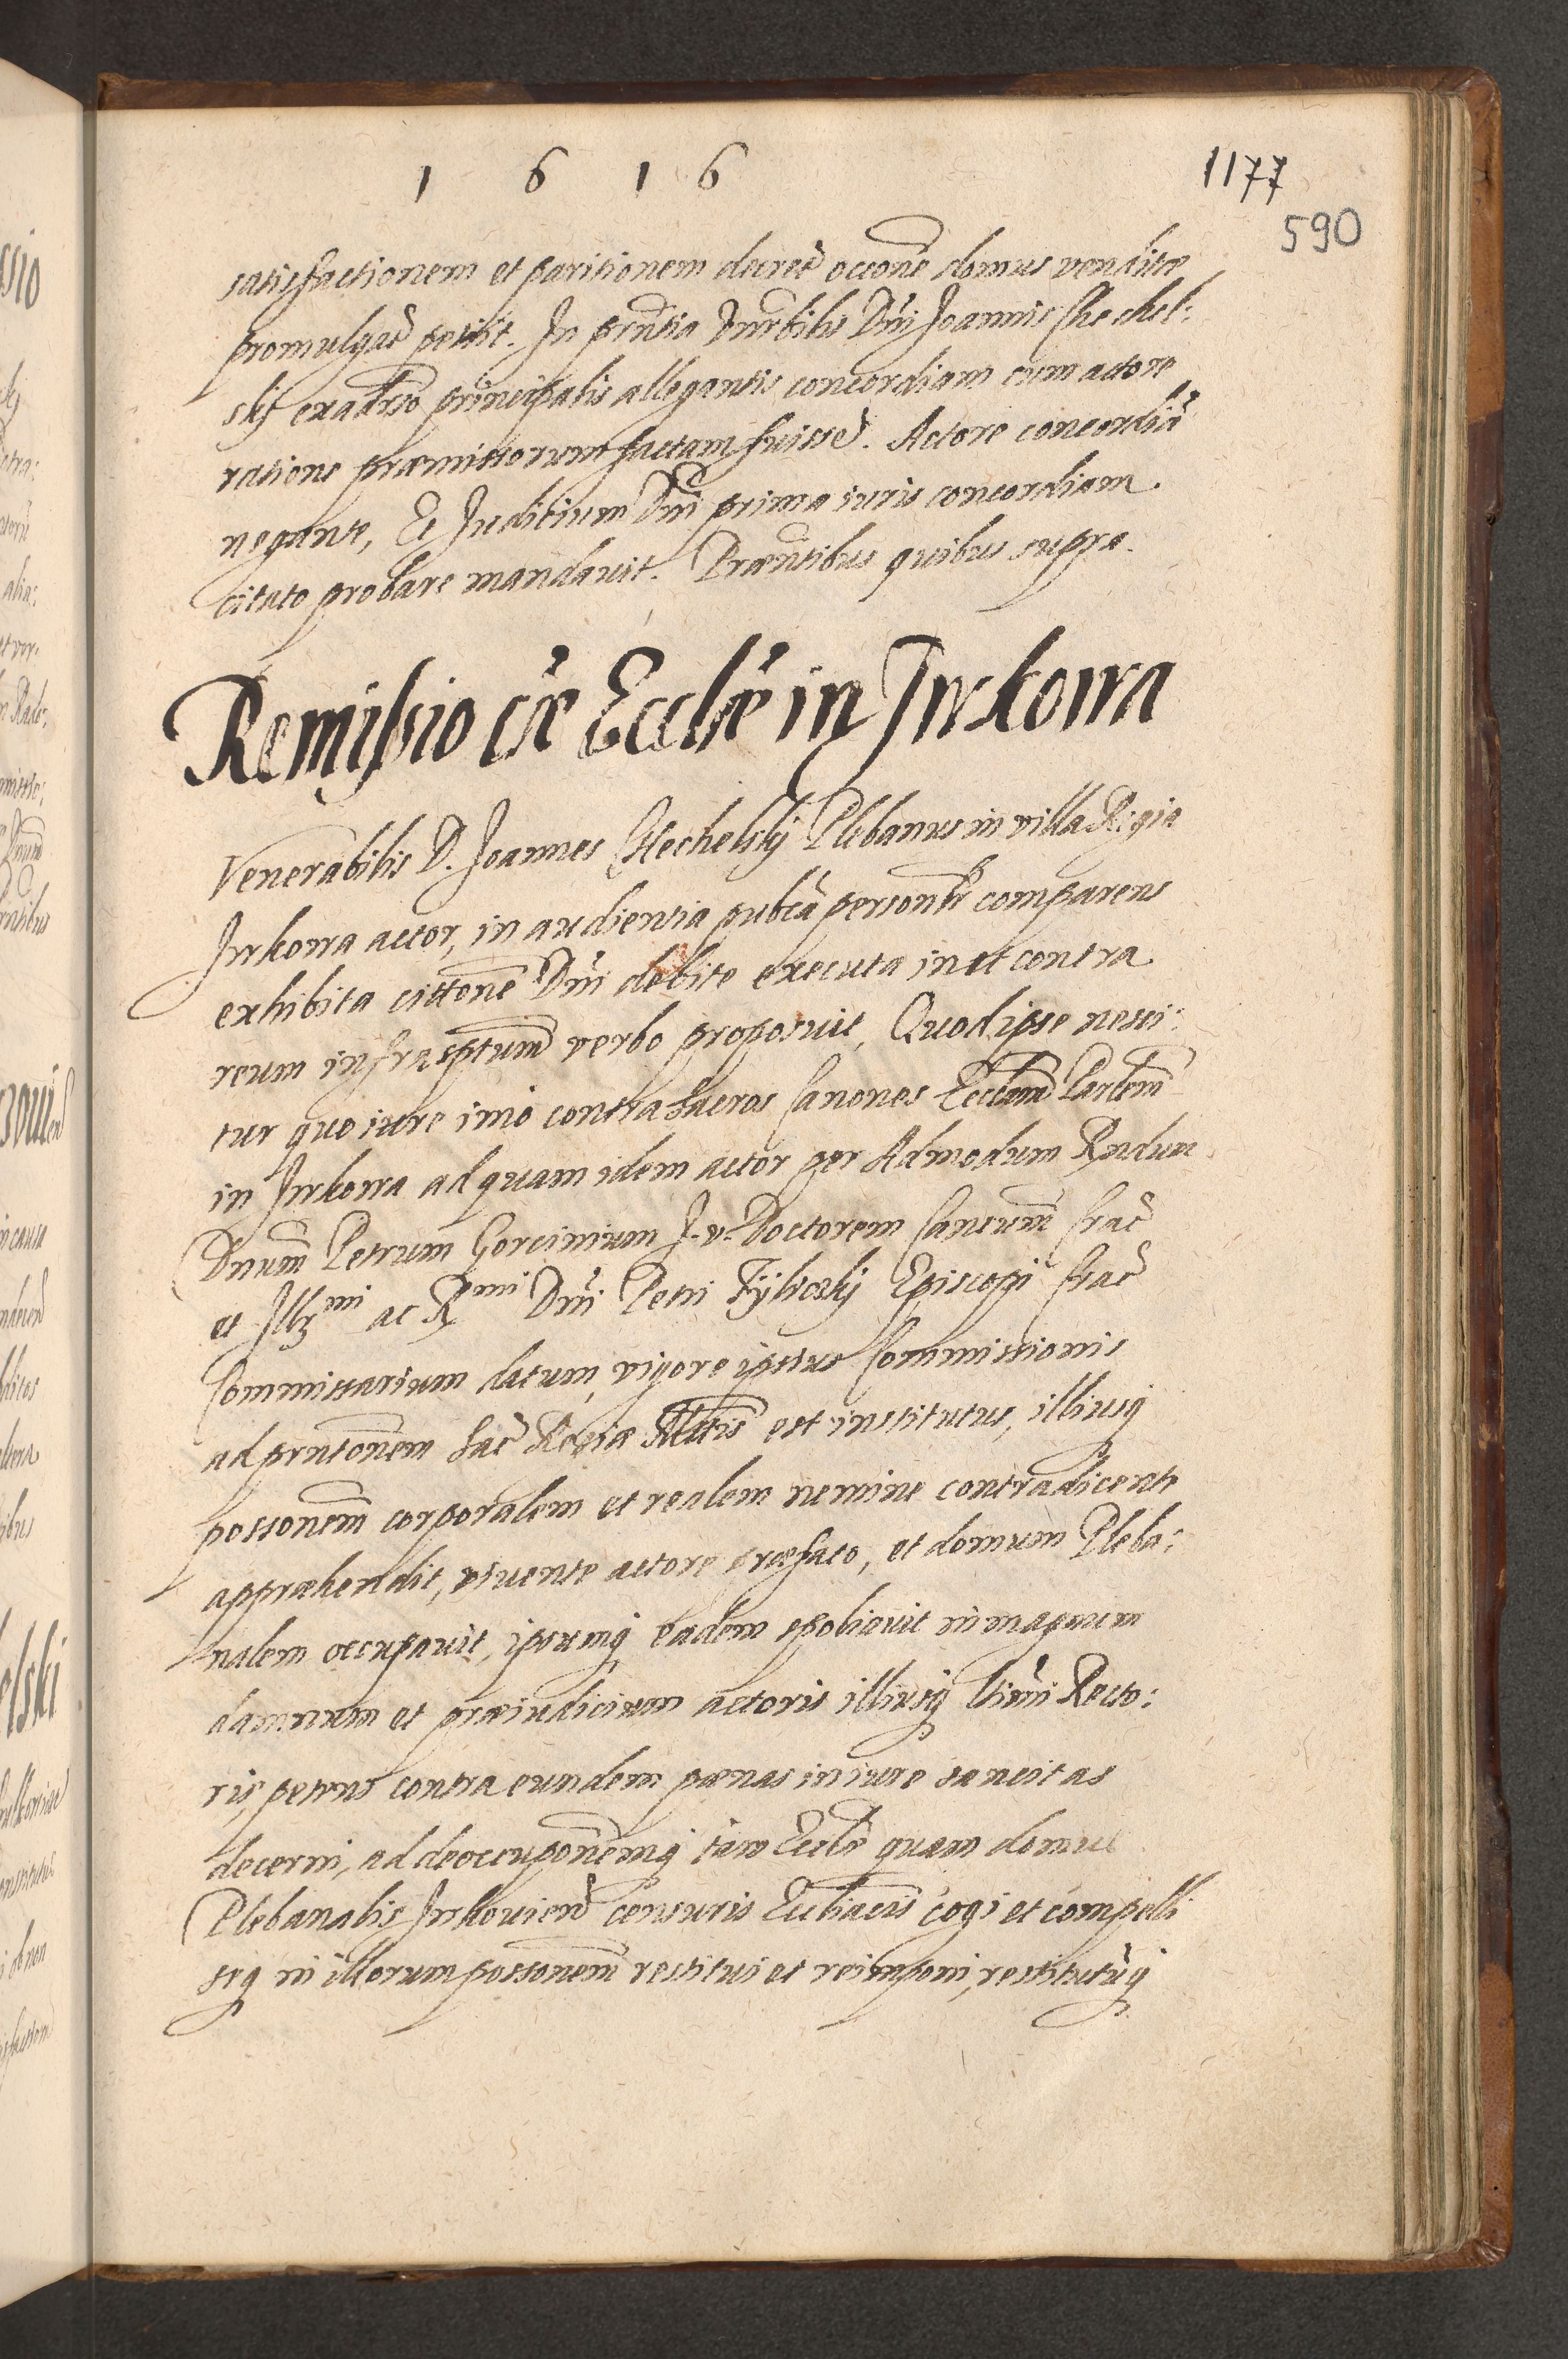 1 6 1 6
1177
590
satisfactionem et paritionem decret occone domus venditæ
promulgari petiit. In pñtia Vnrbilis Dñi Joannis Chechel:
skÿ exadrso principalis allegantis concordiam cum actore
ratione præmissorum factam fuisse. Actore concordiã
negante, Et Juditium Dñi prima iuris concordiam
citato probare mandauit. Præñtibus quibus supra.
Remissio cæ Ecclæ in Jwkowa
Venerabilis D. Joannes Chechelskÿ Plebanus in villa Regia
Jwkowa actor, in audientia pubca personlr comparens
exhibita cittone Dñi debite executa in et contra
reum infrasptum verbo proposuit, Quod ipse nesci:
tur quo iure imo contra Sacros Canones Ecclam Parlem
in Jwkowa ad quam idem actor per Admodum Rndum
Dnum Petrum Gorcinium J. v. Doctorem Cancum Crac
et Illrmi ac Rmi Dñi Petri Tÿliczkÿ Episcopi Crac
Commissarium datum, vigore ipsius Commissionis
ad pñtonem Sac Regiæ Mttis est institutus, illiusq
possonem corporalem et realem nemine contradicente
appræhendit, viuente actore præfato, et domum Pleba:
nalem occupauit, ipsumq eadem spoliauit in magnum
damnum et præiudicium actoris illiusq ltimi Recto:
ris, petens contra eundem pænas in iure sancitas
decerni, ad deoccuponemq tam Eccle quam domus
Plebanalis Jwkouien censuris Eccliacis cogi et compelli
seq in illorum possonem restitui et reimponi, restitutuq